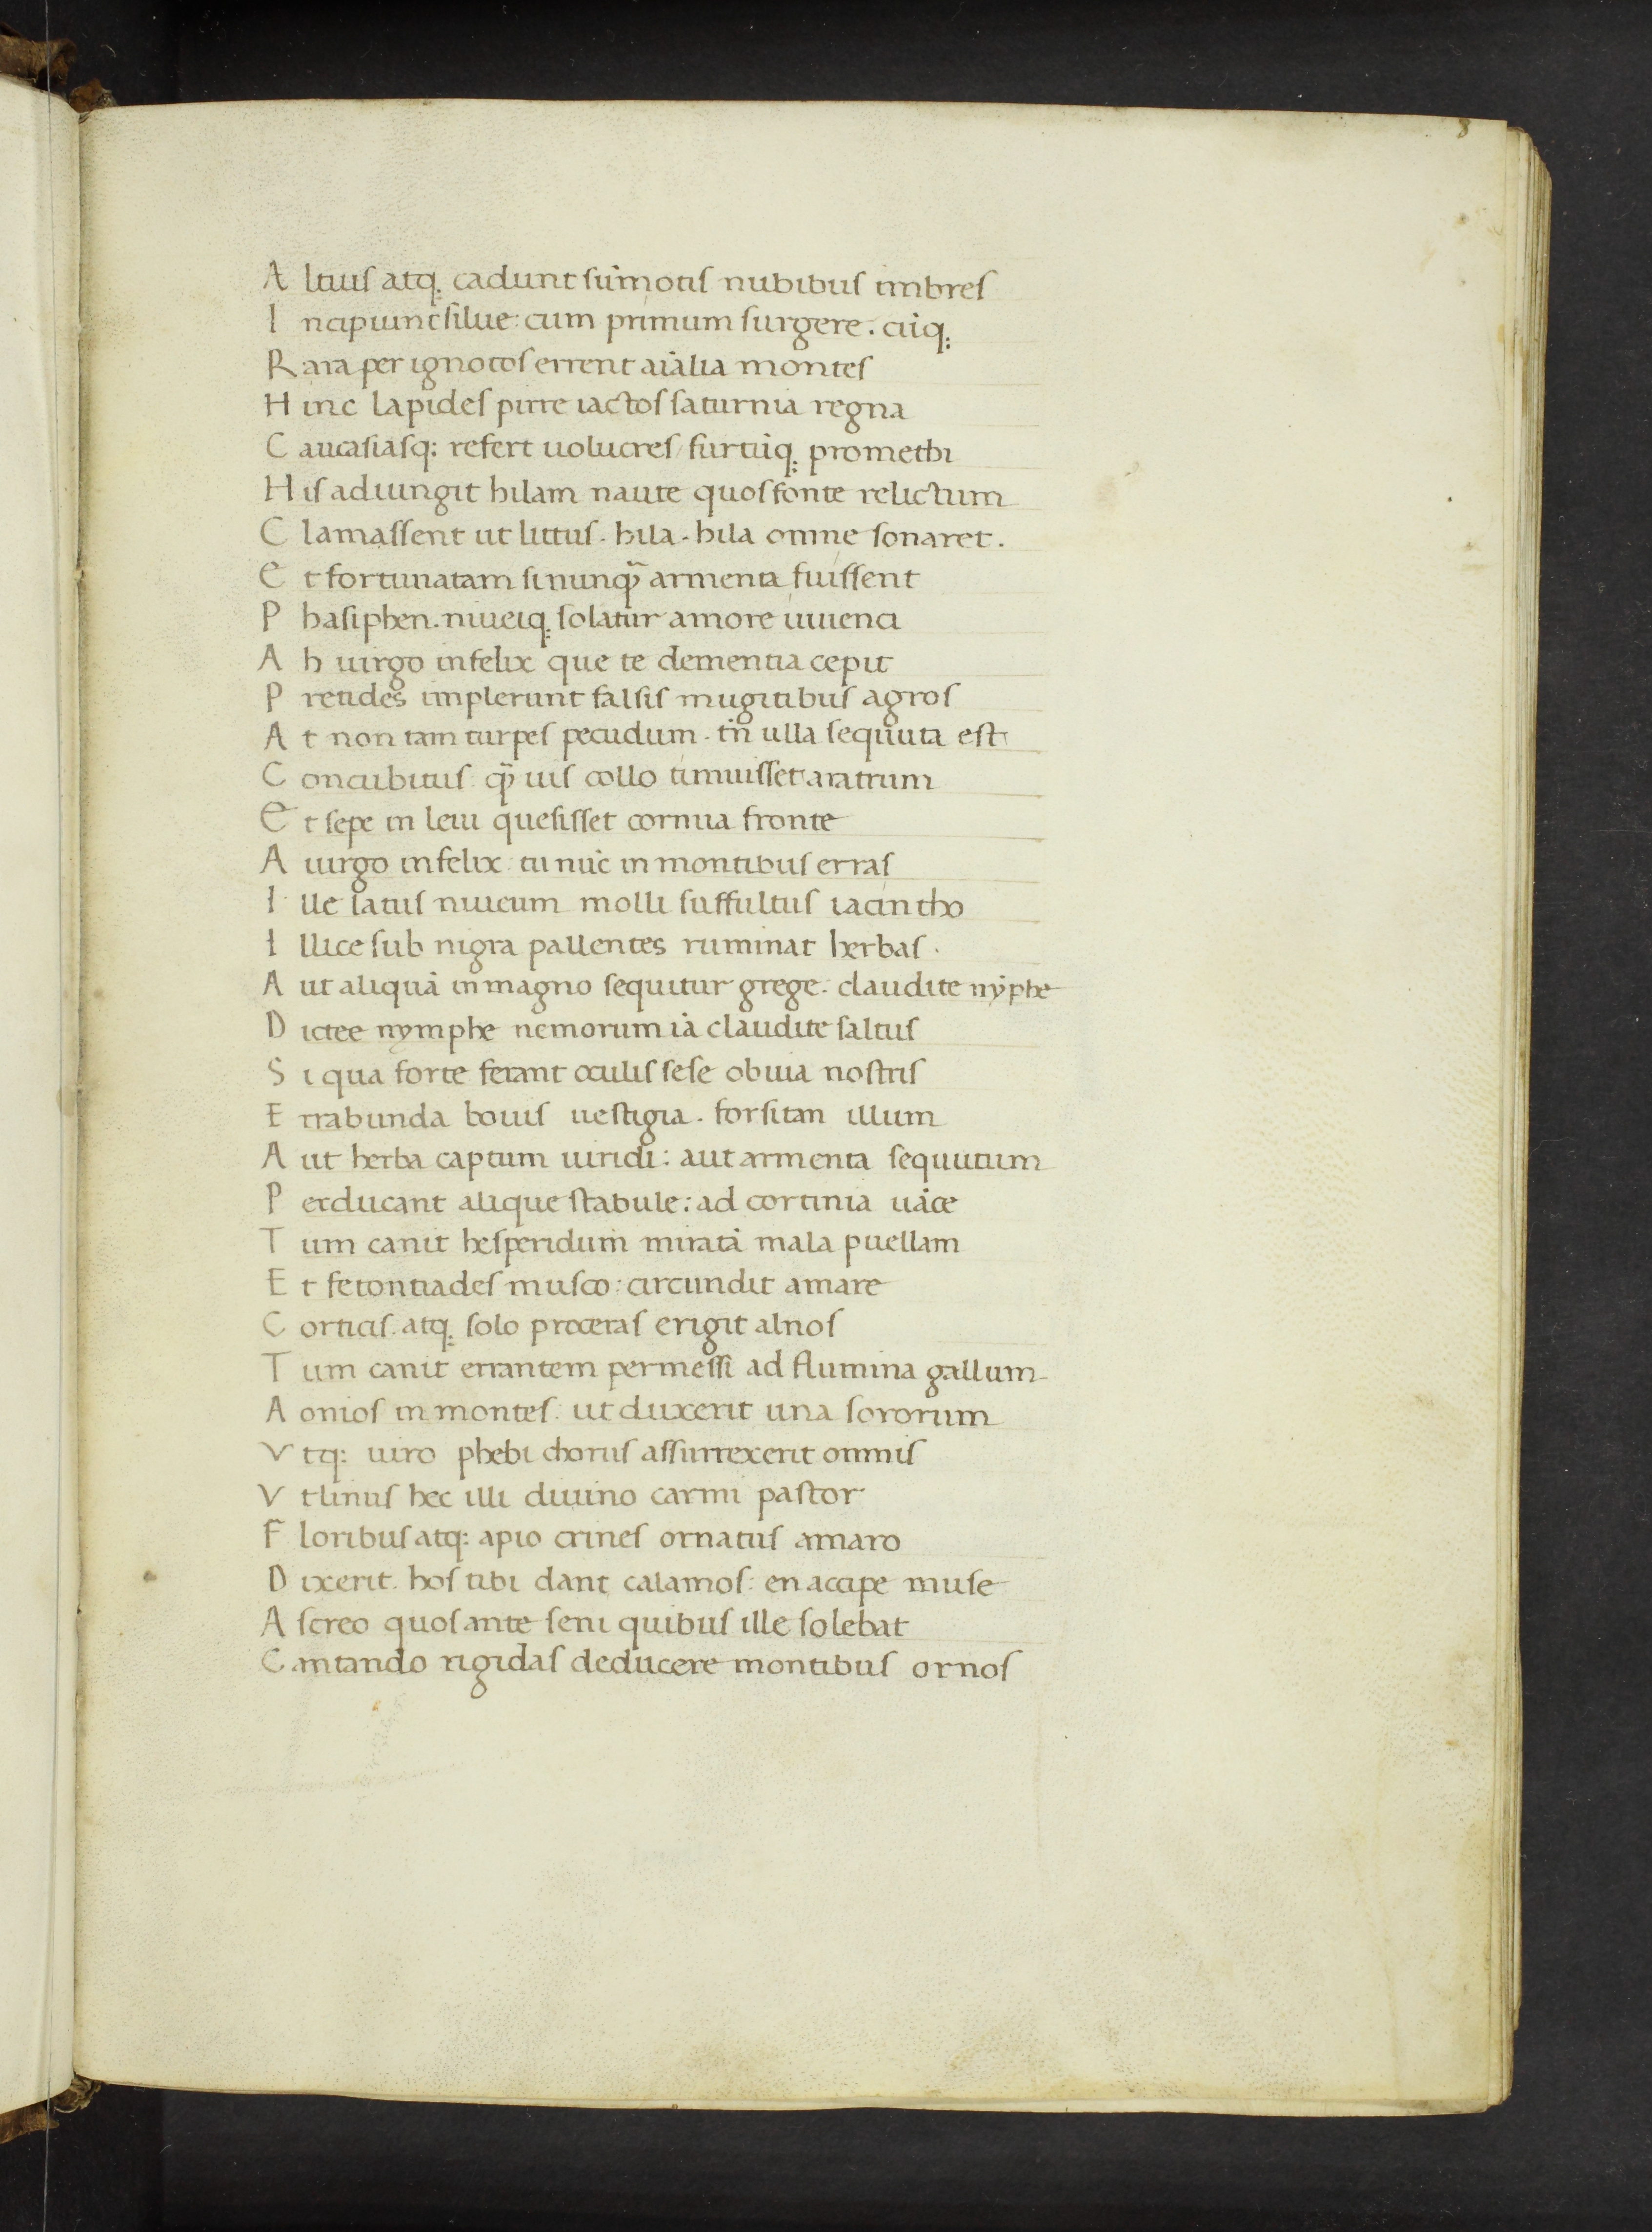 8
Altius atq; cadunt sūmotis nubibus imbres
Incipiunt silue: cum primum surgere. cūq;
Rara per ignotos errent aīalia montes
Hinc lapides pirre iactos saturnia regna
Caucasiasq: refert uolucres furtūq; promethi
His adiungit hilam naute quos fonte relictum
Clamassent ut littus. hila. hila omne sonaret.
Et fortunatam si nunq̄ armenta fuissent
Phasiphen. niueiq; solatur amore iuuenci
Ah uirgo infelix que te dementia cepit
Pretides implerunt falsis mugitibus agros
At non tam turpes pecudum. tn̄ ulla sequuta est
Concubitus. q̄ uis collo timuisset aratrum
Et sepe in leui quesisset cornua fronte
A uirgo infelix: tu nūc in montibus erras
Ille latus niueum molli suffultus iacintho
Illice sub nigra pallentes ruminat herbas.
Aut aliquā in magno sequitur grege. claudite nȳphe
Dictee nymphe nemorum iā claudite saltus
Si qua forte ferant oculis sese obuia nostris
Errabunda bouis uestigia. forsitan illum
Aut herba captum uiridi: aut armenta sequutum
Perducant alique stabule: ad cortinia uāce
Tum canit hesperidum miratā mala puellam
Et fetontiades musco: circundit amare
Corticis. atq; solo proceras erigit alnos
Tum canit errantem permessi ad flumina gallum
Aonios in montes: ut duxerit una sororum
Vtq: uiro phebi chorus assurrexerit omnis
Vt linus hec illi diuino carmī pastor
Floribus atq: apio crines ornatus amaro
Dixerit. hos tibi dant calamos: en accipe muse
Ascreo quos ante seni quibus ille solebat
Cantando rigidas deducere montibus ornos